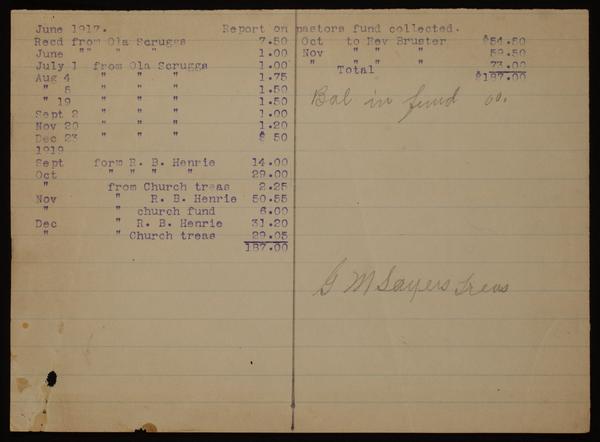 June 1917. Report on pastors fund collected.
Recd from Ola Scruggs 7.50
June "" " " 1.00
July 1 from Ola Scruggs 1.00
Aug 4 " " " 1.75
" 5 " " " 1.50
" 19 " " " 1.50
Sept 2 " " " 1.00
Nov 20 " " " 1.20
Dec 23 " " " $ 50
1919
Sept form R. B. Henrie 14.00
Oct " " " " 29.00
" from Church treas 2.25
Nov " R. B. Henrie 50.55
" " church fund 6.00
Dec " R. B. Henrie 31.20
" " Church treas 29.05
187.00
Oct to Rev Bruster $54.50
Nov " " " 59.50
" " " " 73.00
Total $187.00
Bal in fund 00.
G M Sayers Treas